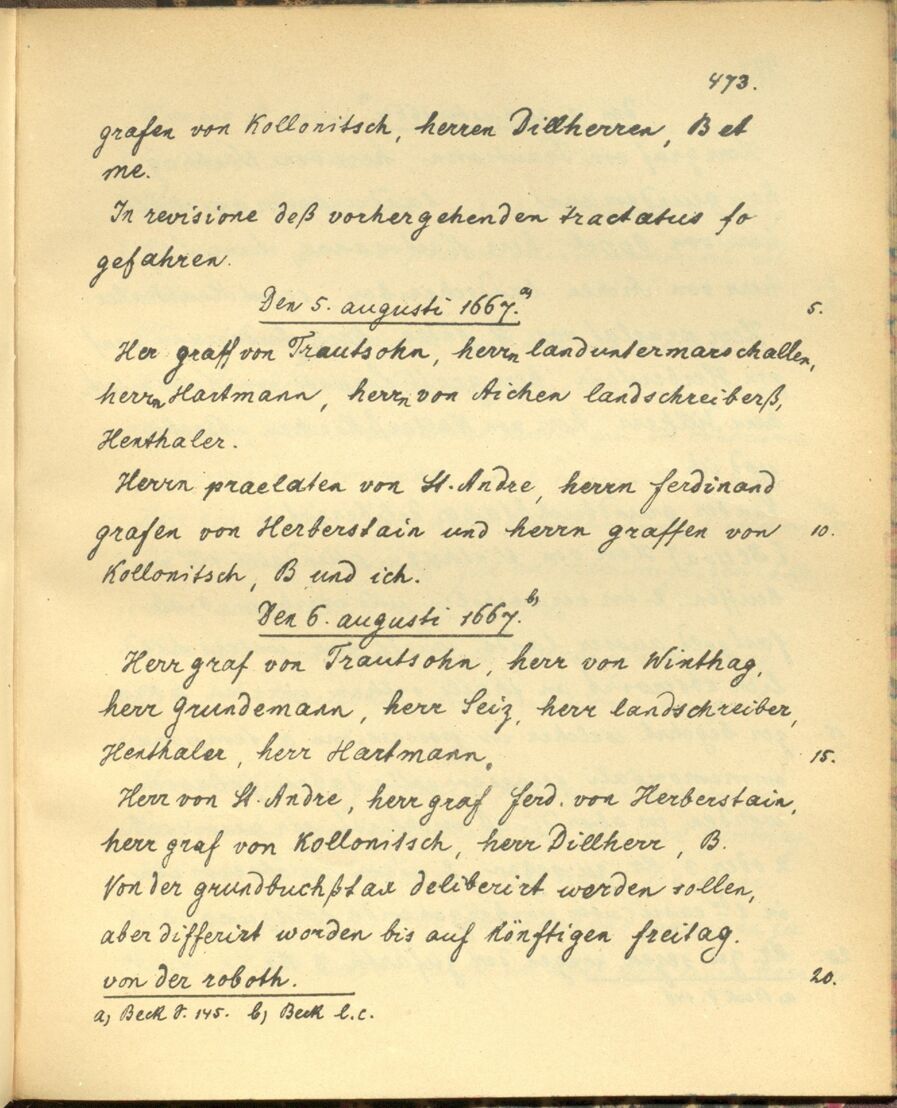 473.
grafen von Kollonitsch, herren Dillherren, B et
me.
In revisione deß vorhergehenden tractatus fo
gefahren.
Den 5. augusti 1667.a) 5.
Her graff von Trautsohn, herrn landuntermarschallen,
herrn Hartmann, herrn von Aichen landschreiberß,
Henthaler.
Herrn praelaten von St. Andre, herrn ferdinand
grafen von Herberstain und herrn graffen von 10.
Kollonitsch, B und ich.
Den 6. augusti 1667.b)
Herr graf von Trautsohn, herr von Winthag,
herr Grundemann, herr Seiz, herr landschreiber,
Henthaler, herr Hartmann. 15.
Herr von St. Andre, herr graf ferd. von Herberstain,
herr graf von Kollonitsch, herr Dillherr, B.
Von der grundbuchßtax deliberirt werden sollen,
aber differirt worden bis auf könftigen freitag.
von der roboth. 20.
a) Beck f. 145. b) Beck l. c.